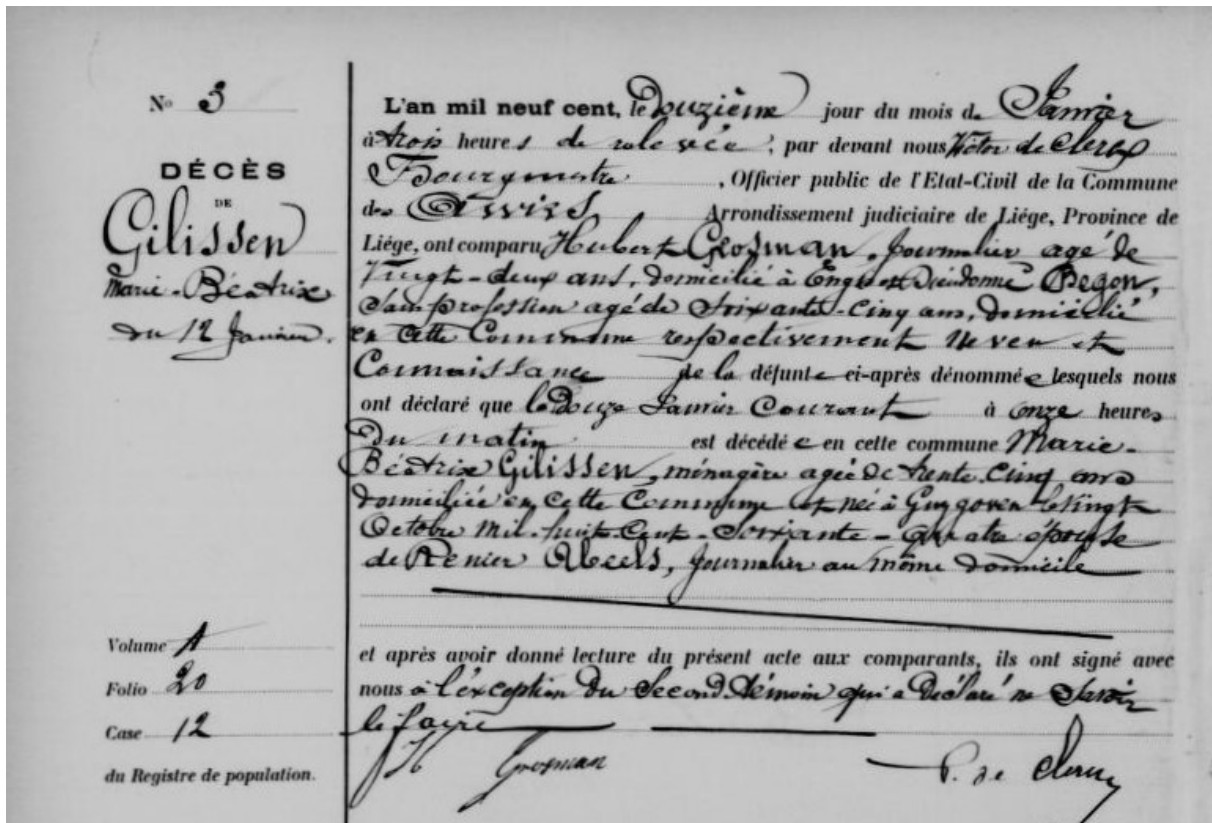 N° 3
DÉCÈS
DE
Gilissen
Marie-Béatrix
du 12 Janvier.
Volume 1
Folio 20
Case 12
du Registre de population.
L'an mil neuf cent, le Douzième jour du mois de Janvier
à trois heures de relevée, par devant nous Victor de Clerx
Bourgmestre, Officier public de l'Etat-Civil de la Commune
des Awirs Arrondissement judiciaire de Liége, Province de
Liége, ont comparu Hubert Grosman, Journalier agé de
Vingt-deux ans, domicilié à Engis et Dieudonné Begon,
Sans profession agé de Soixante-Cinq ans, domicilié
en cette Commune respectivement Neveu et
Connaissance de la défunte ci-après dénommée lesquels nous
ont déclaré que le Douze Janvier Courant à onze heures
Du matin est décédée en cette commune Marie-
Béatrix Gilissen, ménagère agée de trente-Cinq ans
domiciliée en cette Commune et née à Guygoven le Vingt
Octobre mil-huit-Cent-Soixante-Quatre épouse
de Renier Abeels, Journalier au même domicile
et après avoir donné lecture du présent acte aux comparants, ils ont signé avec
nous à l'exception du Second témoin qui a Déclaré ne Savoir
le faire
H Grosman
V. de Clerx